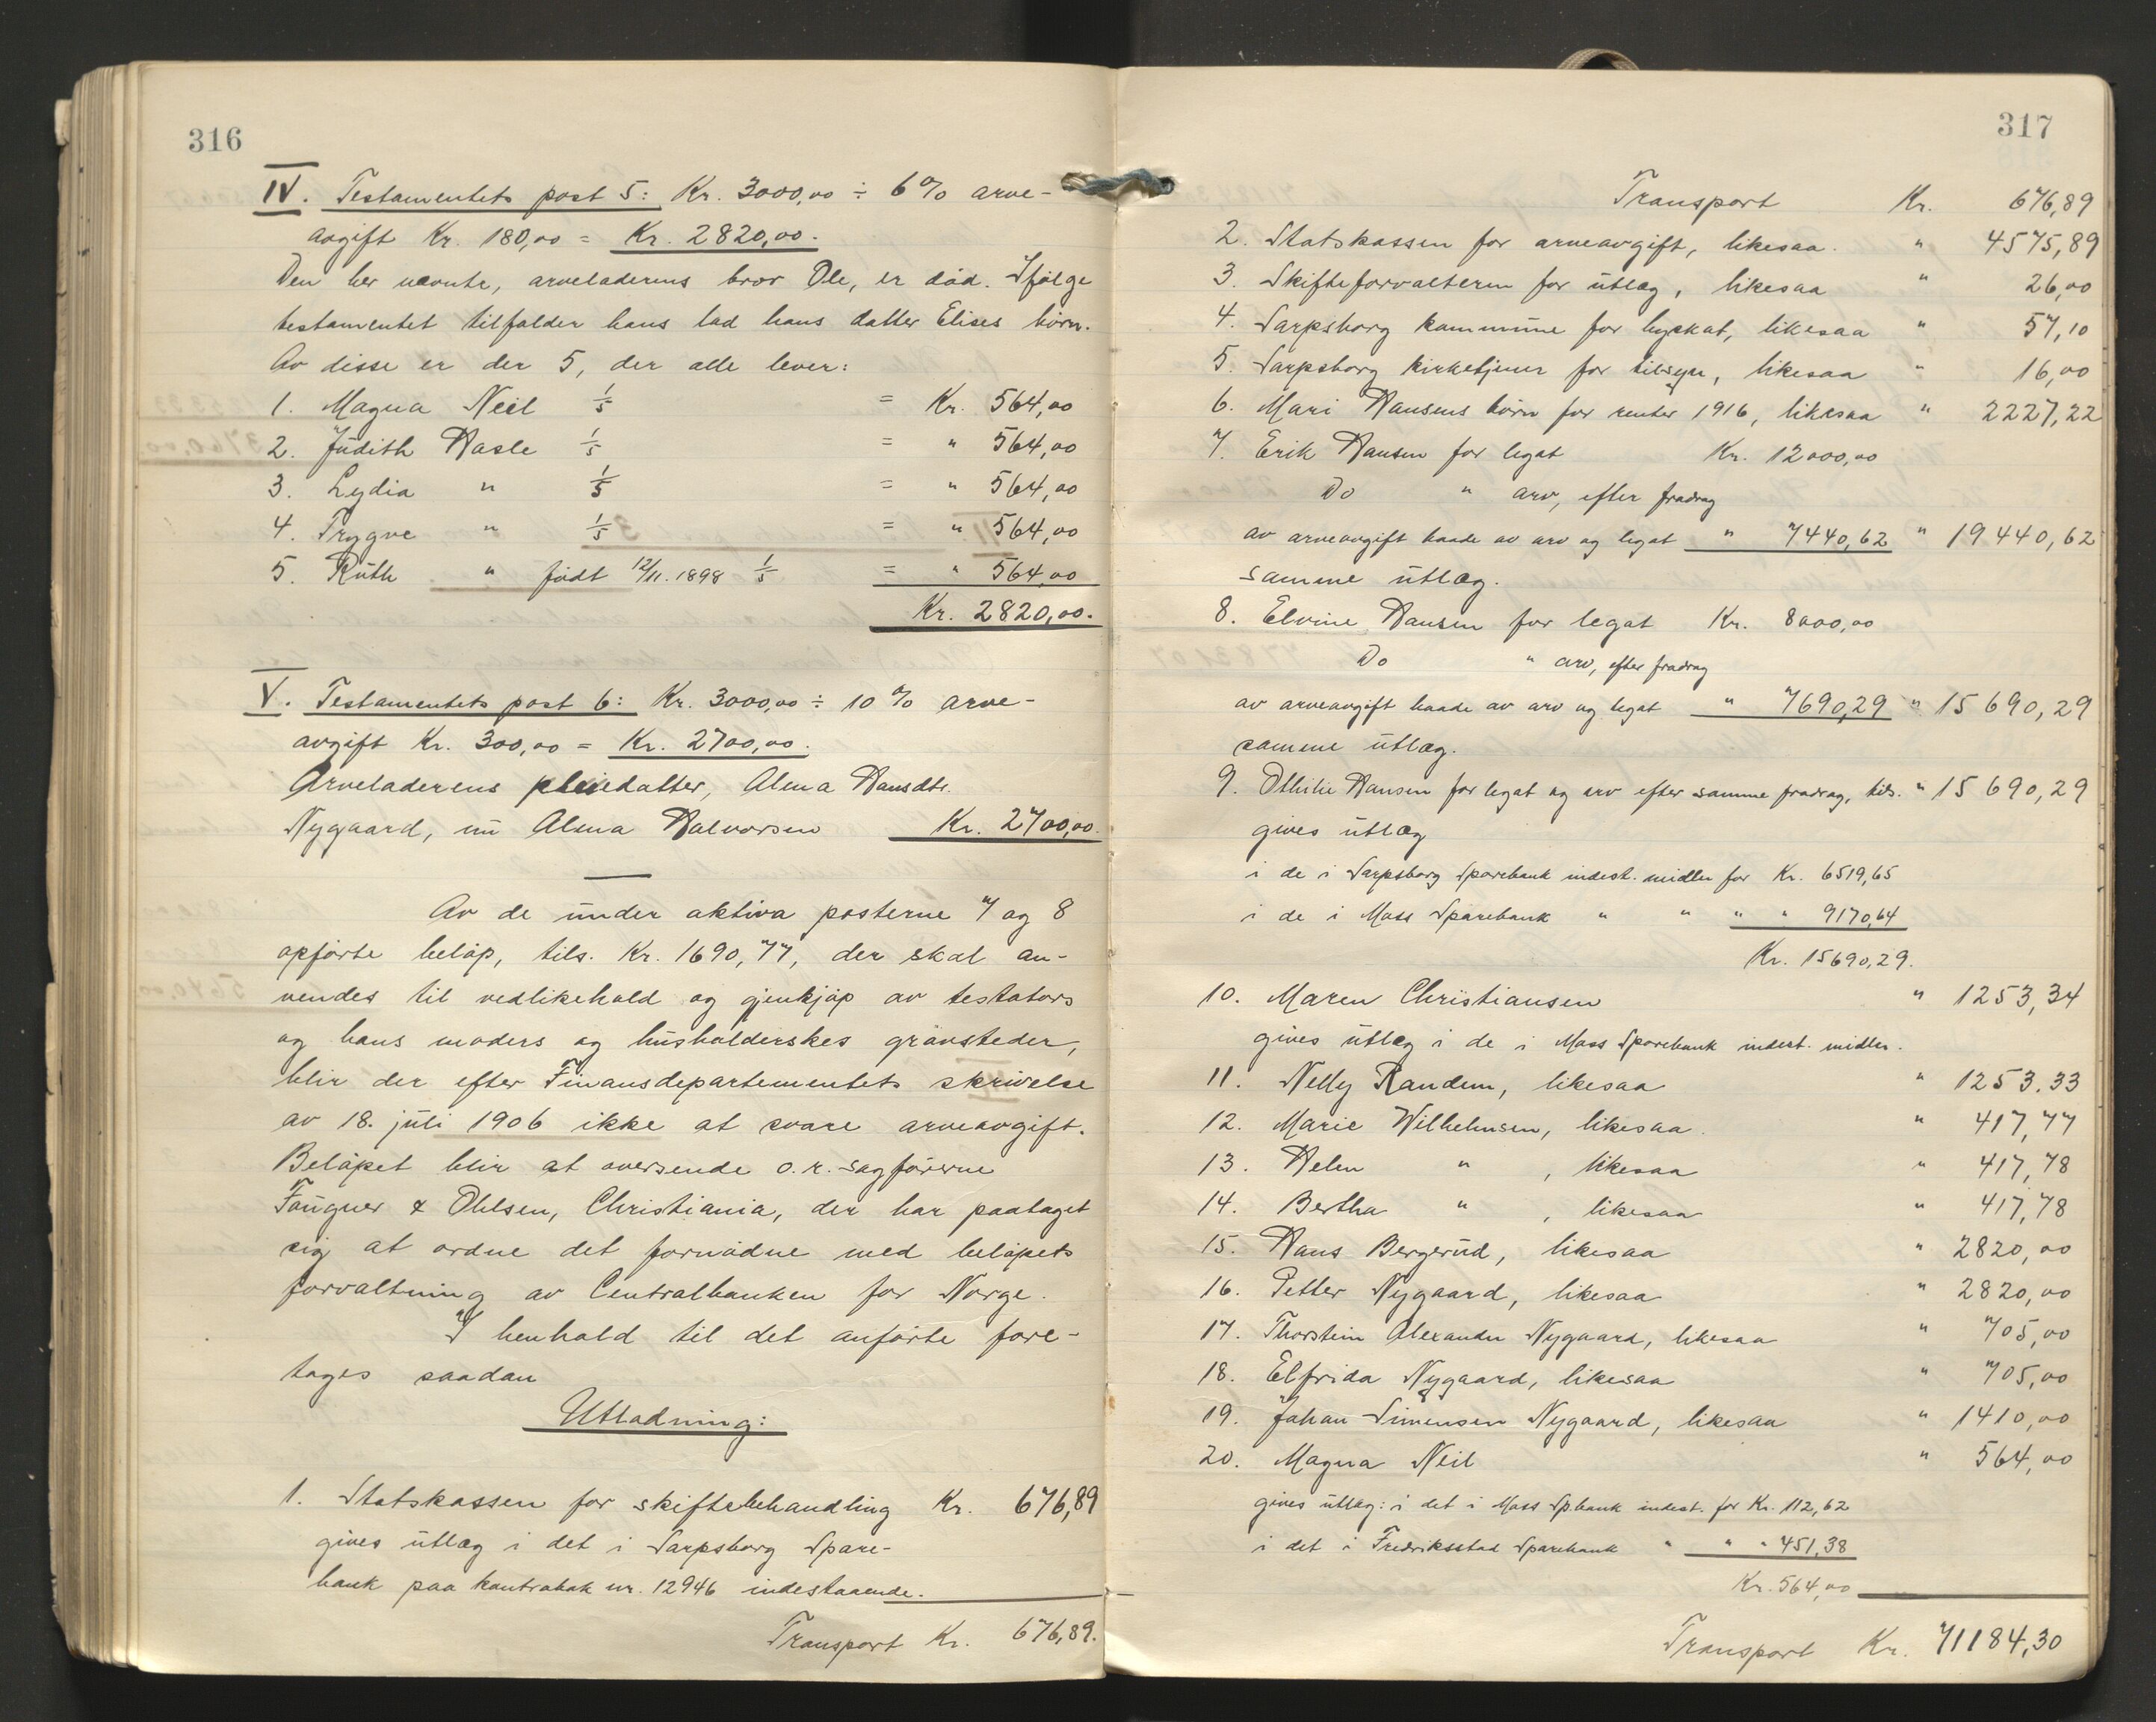 316
IV. Testamentets post 5: Kr. 3000,00 ÷ 6% arve-
avgift Kr. 180,00 = Kr. 2820,00.
Den her nævnte, arveladerens bror Ole, er død. Ifølge
testamentet tilfalder hans lod hans datter Elises børn.
Av disse er der 5, der alle lever:
1. Magna Neil 1/5 = Kr. 564,00
2. Judith Hasle 1/5 = " 564,00
3. Lydia " 1/5 = " 564,00
4. Trygve " 1/5 = " 564,00
5. Ruth " født 12/11.1898 1/5 = " 564,00
Kr. 2820,00.
V. Testamentets post 6: Kr. 3000,00 ÷ 10% arve-
avgift Kr. 300,00 = Kr. 2700,00.
Arveladerens pleiedatter, Alma Hansdtr.
Nygaard, nu Alma Halvorsen Kr. 2700,00.
Av de under aktiva posterne 7 og 8
opførte beløp, tils. Kr. 1690,77, der skal an-
vendes til vedlikehold og gjenkjøp av testators
og hans moders og husholderskes gravsteder,
blir der efter Finansdepartementets skrivelse
av 18. juli 1906 ikke at svare arveavgift.
Beløpet blir at oversende o.r.-sagførerne
Fougner & Ohlsen, Christiania, der har paataget
sig at ordne det fornødne med beløpets
forvaltning av Centralbanken for Norge.
I henhold til det anførte fore-
tages saadan
Utlodning:
1. Statskassen for skiftebehandling Kr. 676,89
gives utlæg i det i Sarpsborg Spare-
bank paa kontrabok nr. 12946 indestaaende.
Transport Kr. 676,89.
317
Transport Kr. 676,89
2. Statskassen for arveavgift, likesaa. " 4575,89
3. Skifteforvalteren for utlæg, likesaa " 26,00
4. Sarpsborg kommune for byskat, likesaa " 57,10
5. Sarpsborg kirketjener for tilsyn, likesaa " 16,00
6. Mari Hansens børn for renter 1916, likesaa " 2227,22
7. Erik Hansen for legat Kr. 12000,00
Do " arv, efter fradrag
av arveavgift baade av arv og legat " 7440,62 " 19440,62
samme utlæg.
8. Elvine Hansen for legat Kr. 8000,00
Do " arv, efter fradrag
av arveavgift baade av arv og legat " 7690,29 " 15690,29
samme utlæg.
9. Othilie Hansen for legat og arv efter samme fradrag, tils. " 15690,29
gives utlæg
i de i Sarpsborg Sparebank indest. midler for Kr. 6519,65
i de i Moss Sparebank " " " " 9170,64
Kr. 15690,29.
10. Maren Christiansen " 1253,34
gives utlæg i de i Moss Sparebank indest. midler.
11. Nelly Randem, likesaa " 1253.33
12. Marie Wilhelmsen, likesaa. " 417,77
13. Helen " , likesaa " 417,78
14. Bertha " , likesaa " 417,78
15. Hans Bergerud, likesaa " 2820,00
16. Petter Nygaard, likesaa " 2820,00
17. Thorstein Alexander Nygaard, likesaa " 705,00
18. Elfrida Nygaard, likesaa " 705,00
19. Johan Simensen Nygaard, likesaa " 1410,00
20. Magna Neil " 564,00
gives utlæg: i det i Moss Sp.bank indest. for Kr. 112,62
i det i Fredriksstad Sparebank " " " 451,38
Kr. 564,00
Transport Kr. 71184,30